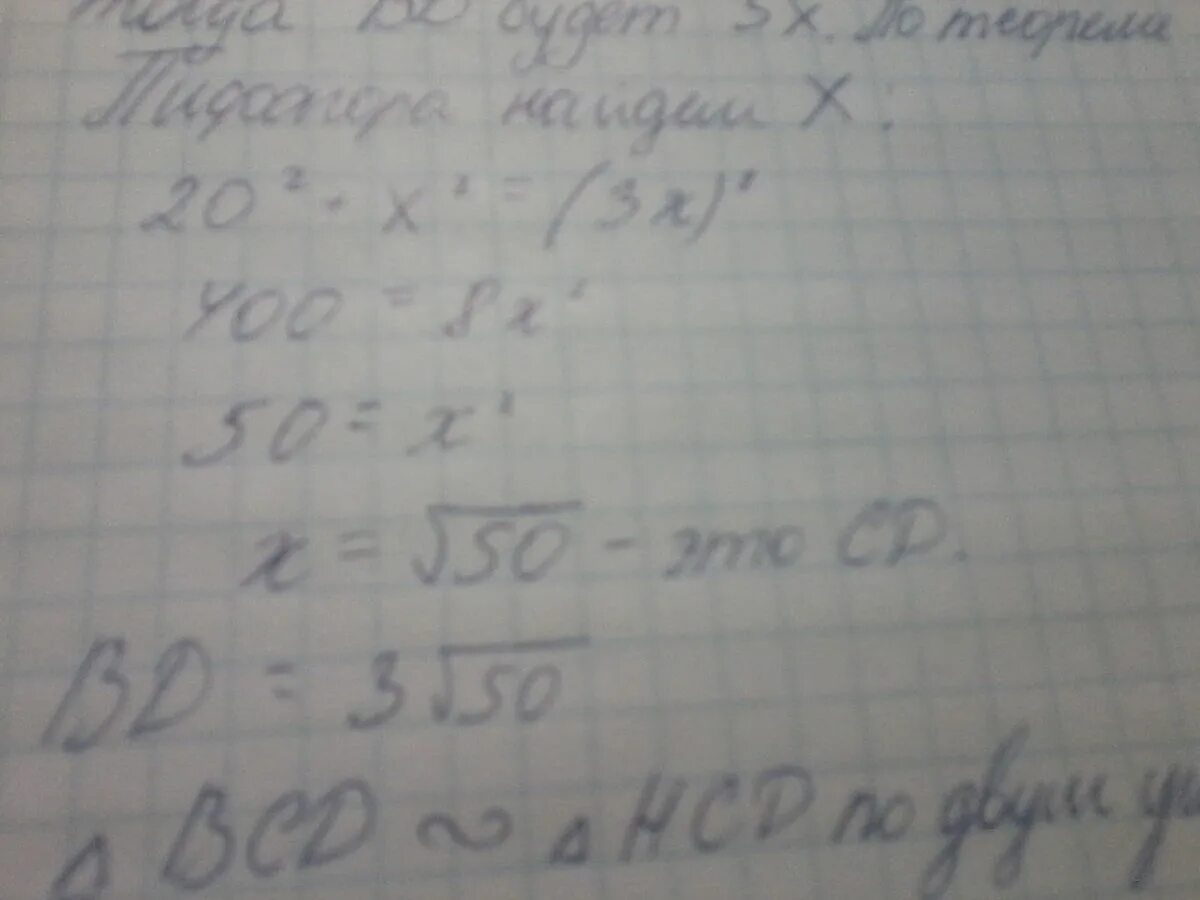 тогда BD будет 3x. По теореме
Пифагора найдем X:
20² + x² = (3x)²
400 = 8x²
50 = x²
x = √50 - это CD.
BD = 3√50
△ BCD ∼ △ HCD по двум